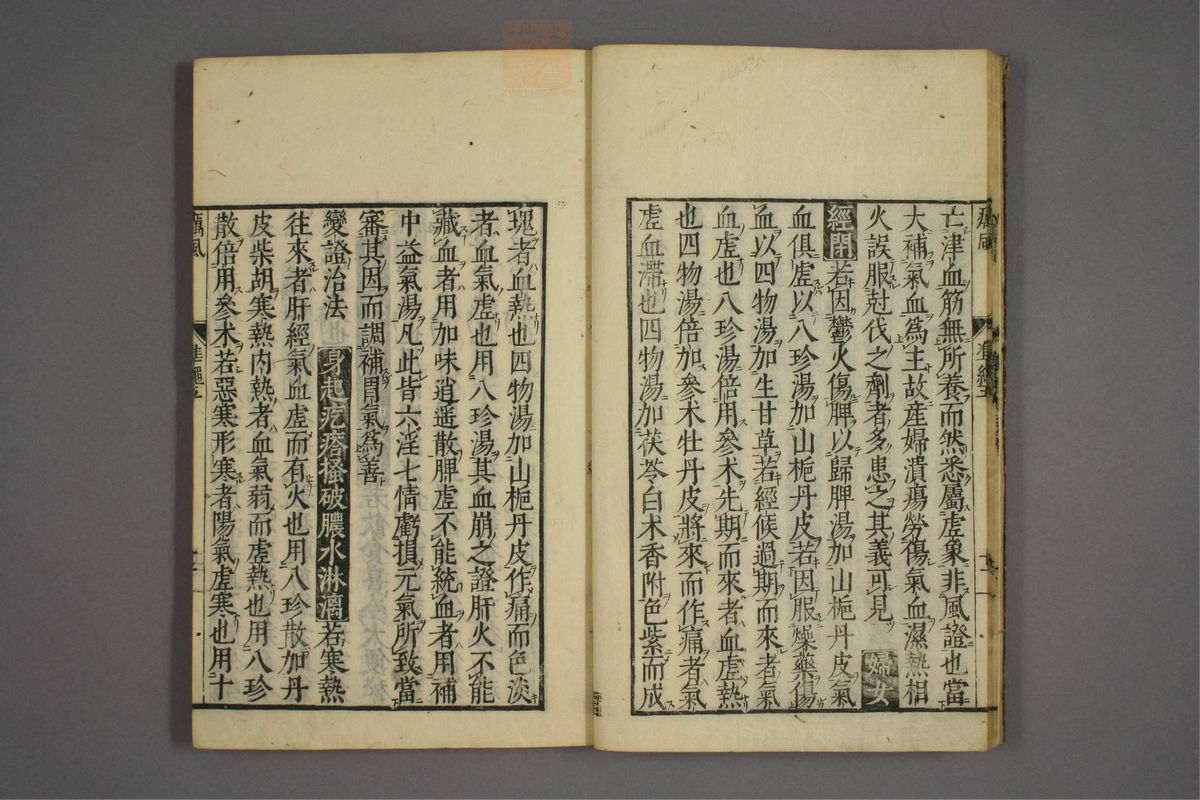 亡津血筋無所養而然悉屬虛象非風證也當
大補氣血為主故産婦潰瘍勞傷氣血濕熱相
火誤服尅伐之劑者多患之其義可見 婦女
經閉若因鬱火傷脾以歸脾湯加山梔丹皮氣
血俱虛以八珍湯加山梔丹皮若因服燥藥傷
血以四物湯加生甘草若經候過期而來者氣
血虛也八珍湯倍用參朮先期而來者血虛熱
也四物湯倍加參朮牡丹皮將來而作痛者氣
虛血滯也四物湯加茯苓白朮香附色紫而成
塊者血熱也四物湯加山梔丹皮作痛而色淡
者血氣虛也用八珍湯其血崩之證肝火不能
藏血者用加味逍遥散脾虛不能統血者用補
中益氣湯凡此皆六淫七情虧損元氣所致當
審其因而調補胃氣為善
變證治法 身起疙瘩搔破膿水淋漓若寒熱
往來者肝經氣血虛而有火也用八珍散加丹
皮柴胡寒熱内熱者血氣弱而虛熱也用八珍
散倍用參朮若惡寒形寒者陽氣虛寒也用十
癘風 準繩五